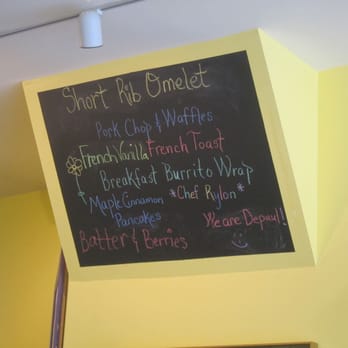 Short Rib Omelet
Pork Chop & Waffles
French Vanilla French Toast
Breakfast Burrito Wrap
Maple Cinnamon *Chef Rylon*
Pancakes
We are Depaul!!
Batter & Berries